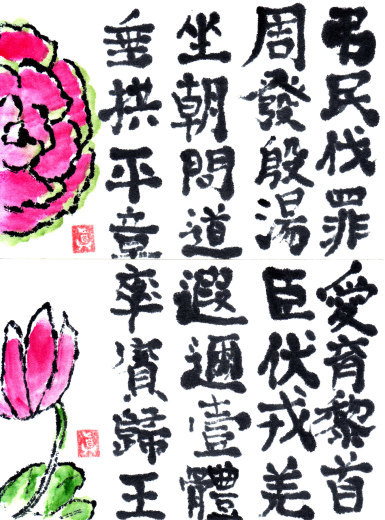 弔民伐罪
周發殷湯
坐朝問道
垂拱平章
眞
愛育黎首
臣伏戎羌
遐邇壹體
率賓歸王
眞